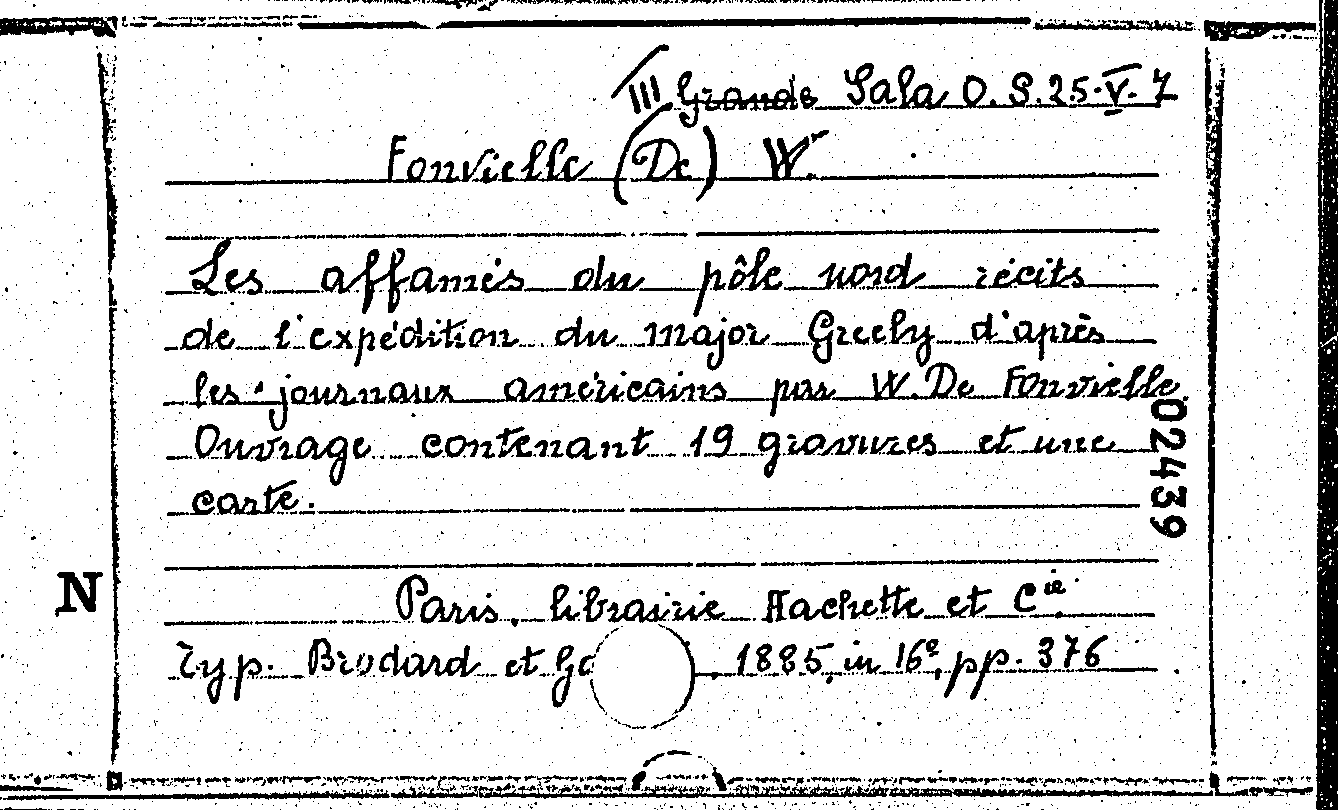 III Grande Sala O. S. 25-V-7
Fonvielle (De) W.
Les affamés du pôle nord récits
de l'expédition du major Greely d'après
les journaux américains par W. De Fonvielle
Ouvrage contenant 19 gravures et une
carte.
02439
N
Paris, librairie Hachette et Cie.
Typ. Brodard et Ga . 1885, in 16º, pp. 376